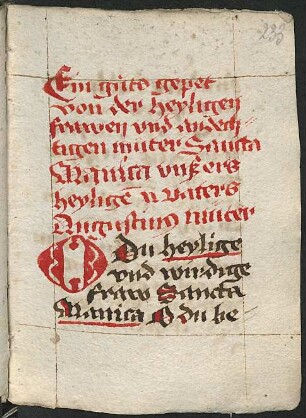 233
Ein guts gepet
von der heyligen
frawen vnd andech
tigen muter Sancta
Manica vnßers
heyligen vaters
Augustinus muter
O Du heylige
vnd wirdige
fraw Sancta
Manica O du be